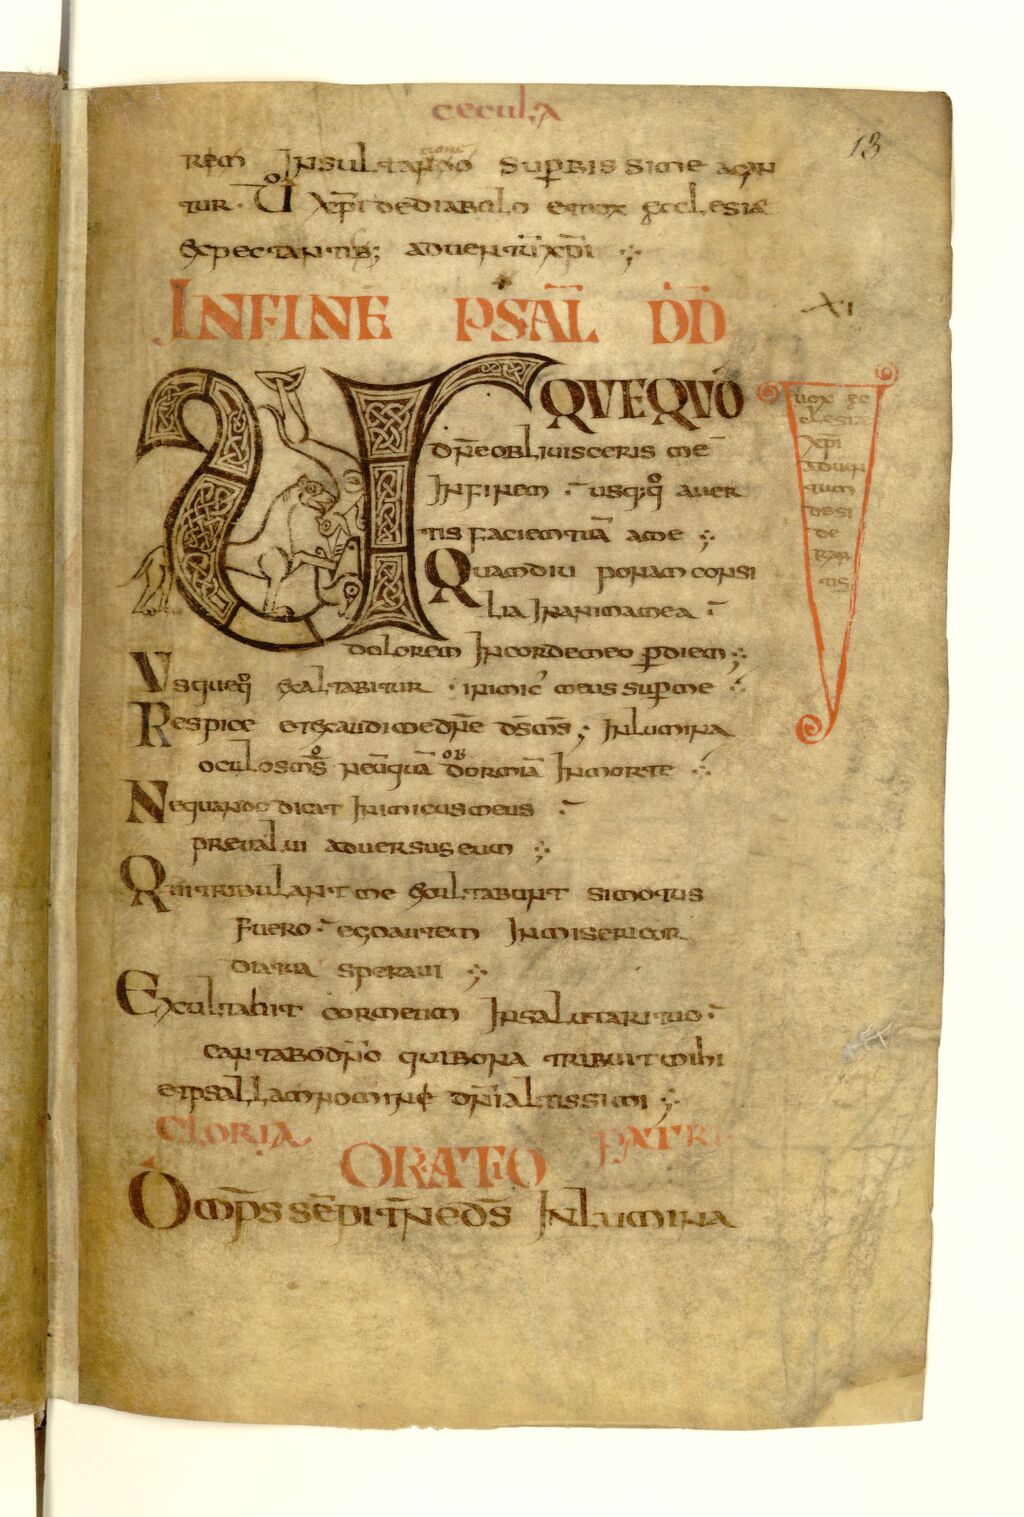 cecula
13
rem Insultando superbissime agun
tur. Vo xp̄i de diabolo et uox ecclesiæ
expectantib; aduentū xp̄i
INFINE PSAL̄ DD̄
XI
USQVEQVO
dn̄e obliuisceris me
Infinem usq;q̊ auer
tis faciem tuā a me
Quamdiu ponam consi
lia In anima mea
dolorem In corde meo p̄ diem
Vsqueq̊ exaltabitur inimic' meus sup me
Respice et exaudi me dn̄e ds̄ ms̄; Inlumina
oculos ms̊ neūquā obdormiā In morte
Nequando dicat Inimicus meus
preualui aduersus eum
Qui tribulant me exultabunt si motus
fuero ego autem In misericor
dia tua speraui
Exultabit cor meum In salutari tuo
cantabo dn̄o qui bona tribuit mihi
et psallam nomine dn̄i altissimi
GLORIA PATRI
ORATIO
Omp̄s sēpit̄ne ds̄ Inlumina
uox ec
clesia
xp̄i
aduen
tum
desi
de
ran
tis